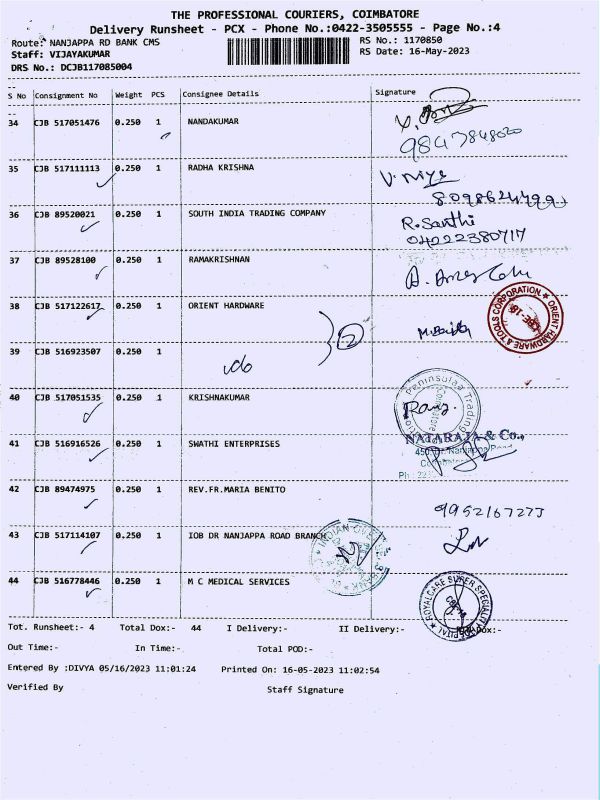 THE PROFESSIONAL COURIERS, COIMBATORE
Delivery Runsheet - PCX - Phone No.:0422-3505555 - Page No.:4
Route: NANJAPPA RD BANK CMS RS No.: 1170850
Staff: VIJAYAKUMAR RS Date: 16-May-2023
DRS No.: DCJB117085004
S No Consignment No Weight PCS Consignee Details Signature
34 CJB 517051476 0.250 1 NANDAKUMAR
35 CJB 517111113 0.250 1 RADHA KRISHNA
36 CJB 89520021 0.250 1 SOUTH INDIA TRADING COMPANY R. Santhi
04222380717
37 CJB 89528100 0.250 1 RAMAKRISHNAN
38 CJB 517122617 0.250 1 ORIENT HARDWARE
ORIENT HARDWARE & TOOLS CORPORATION
CBE-18
39 CJB 516923507 0.250 1
do
40 CJB 517051535 0.250 1 KRISHNAKUMAR
Peninsulaa Trading
41 CJB 516916526 0.250 1 SWATHI ENTERPRISES NATARAJA & Co.,
42 CJB 89474975 0.250 1 REV.FR.MARIA BENITO
43 CJB 517114107 0.250 1 IOB DR NANJAPPA ROAD BRANCH
44 CJB 516778446 0.250 1 M C MEDICAL SERVICES
ROYALCARE SUPER SPECIALITY HOSPITAL
Tot. Runsheet:- 4 Total Dox:- 44 I Delivery:- II Delivery:-
Out Time:- In Time:- Total POD:-
Entered By :DIVYA 05/16/2023 11:01:24 Printed On: 16-05-2023 11:02:54
Verified By Staff Signature